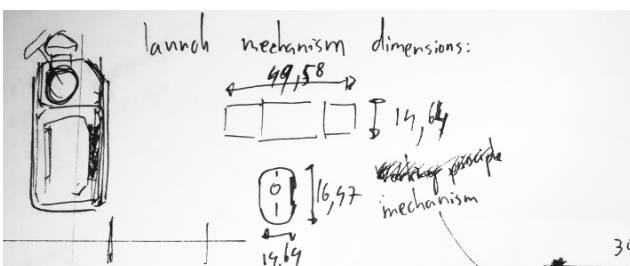 launch mechanism dimensions:
49,58
14,64
16,97
mechanism
14,64
30